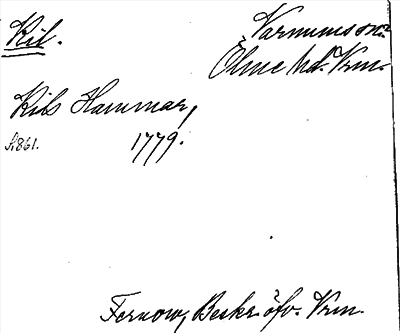 Kil.
Varnums sn.
Ölme hd. Vrm.
Kils Hammar,
A861.
1779.
Fernow, Beskr. öfv. Vrm.